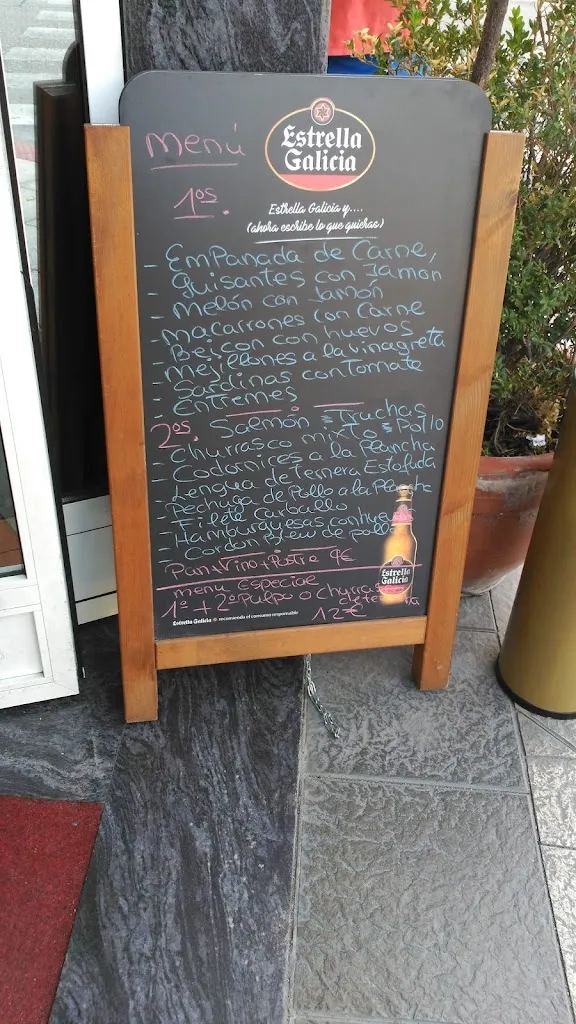 Menú
Estrella
Galicia
1os.
Estrella Galicia y....
(ahora escribe lo que quieras)
- Empanada de Carne,
- guisantes con Jamon
- Melón con Jamón
- macarrones con Carne
- Beicon con huevos
- Mejillones a la vinagreta
- Sardinas con Tomate
- Entremes
2os. Salmón = Truchas
- Churrasco mixto = Pollo
- Codornices a la Plancha
- Lengua de Ternera Estofada
- Pechuga de Pollo a la Planche
- Filete Carballo
- Hamburguesas con huevo
- Cordon Bleu de pollo
Pan+Vino+Postre 9€
menu especial
1º + 2º Pulpo o Churrasco
de ternera
12€
Estrella
Galicia
Estrella Galicia recomienda el consumo responsable